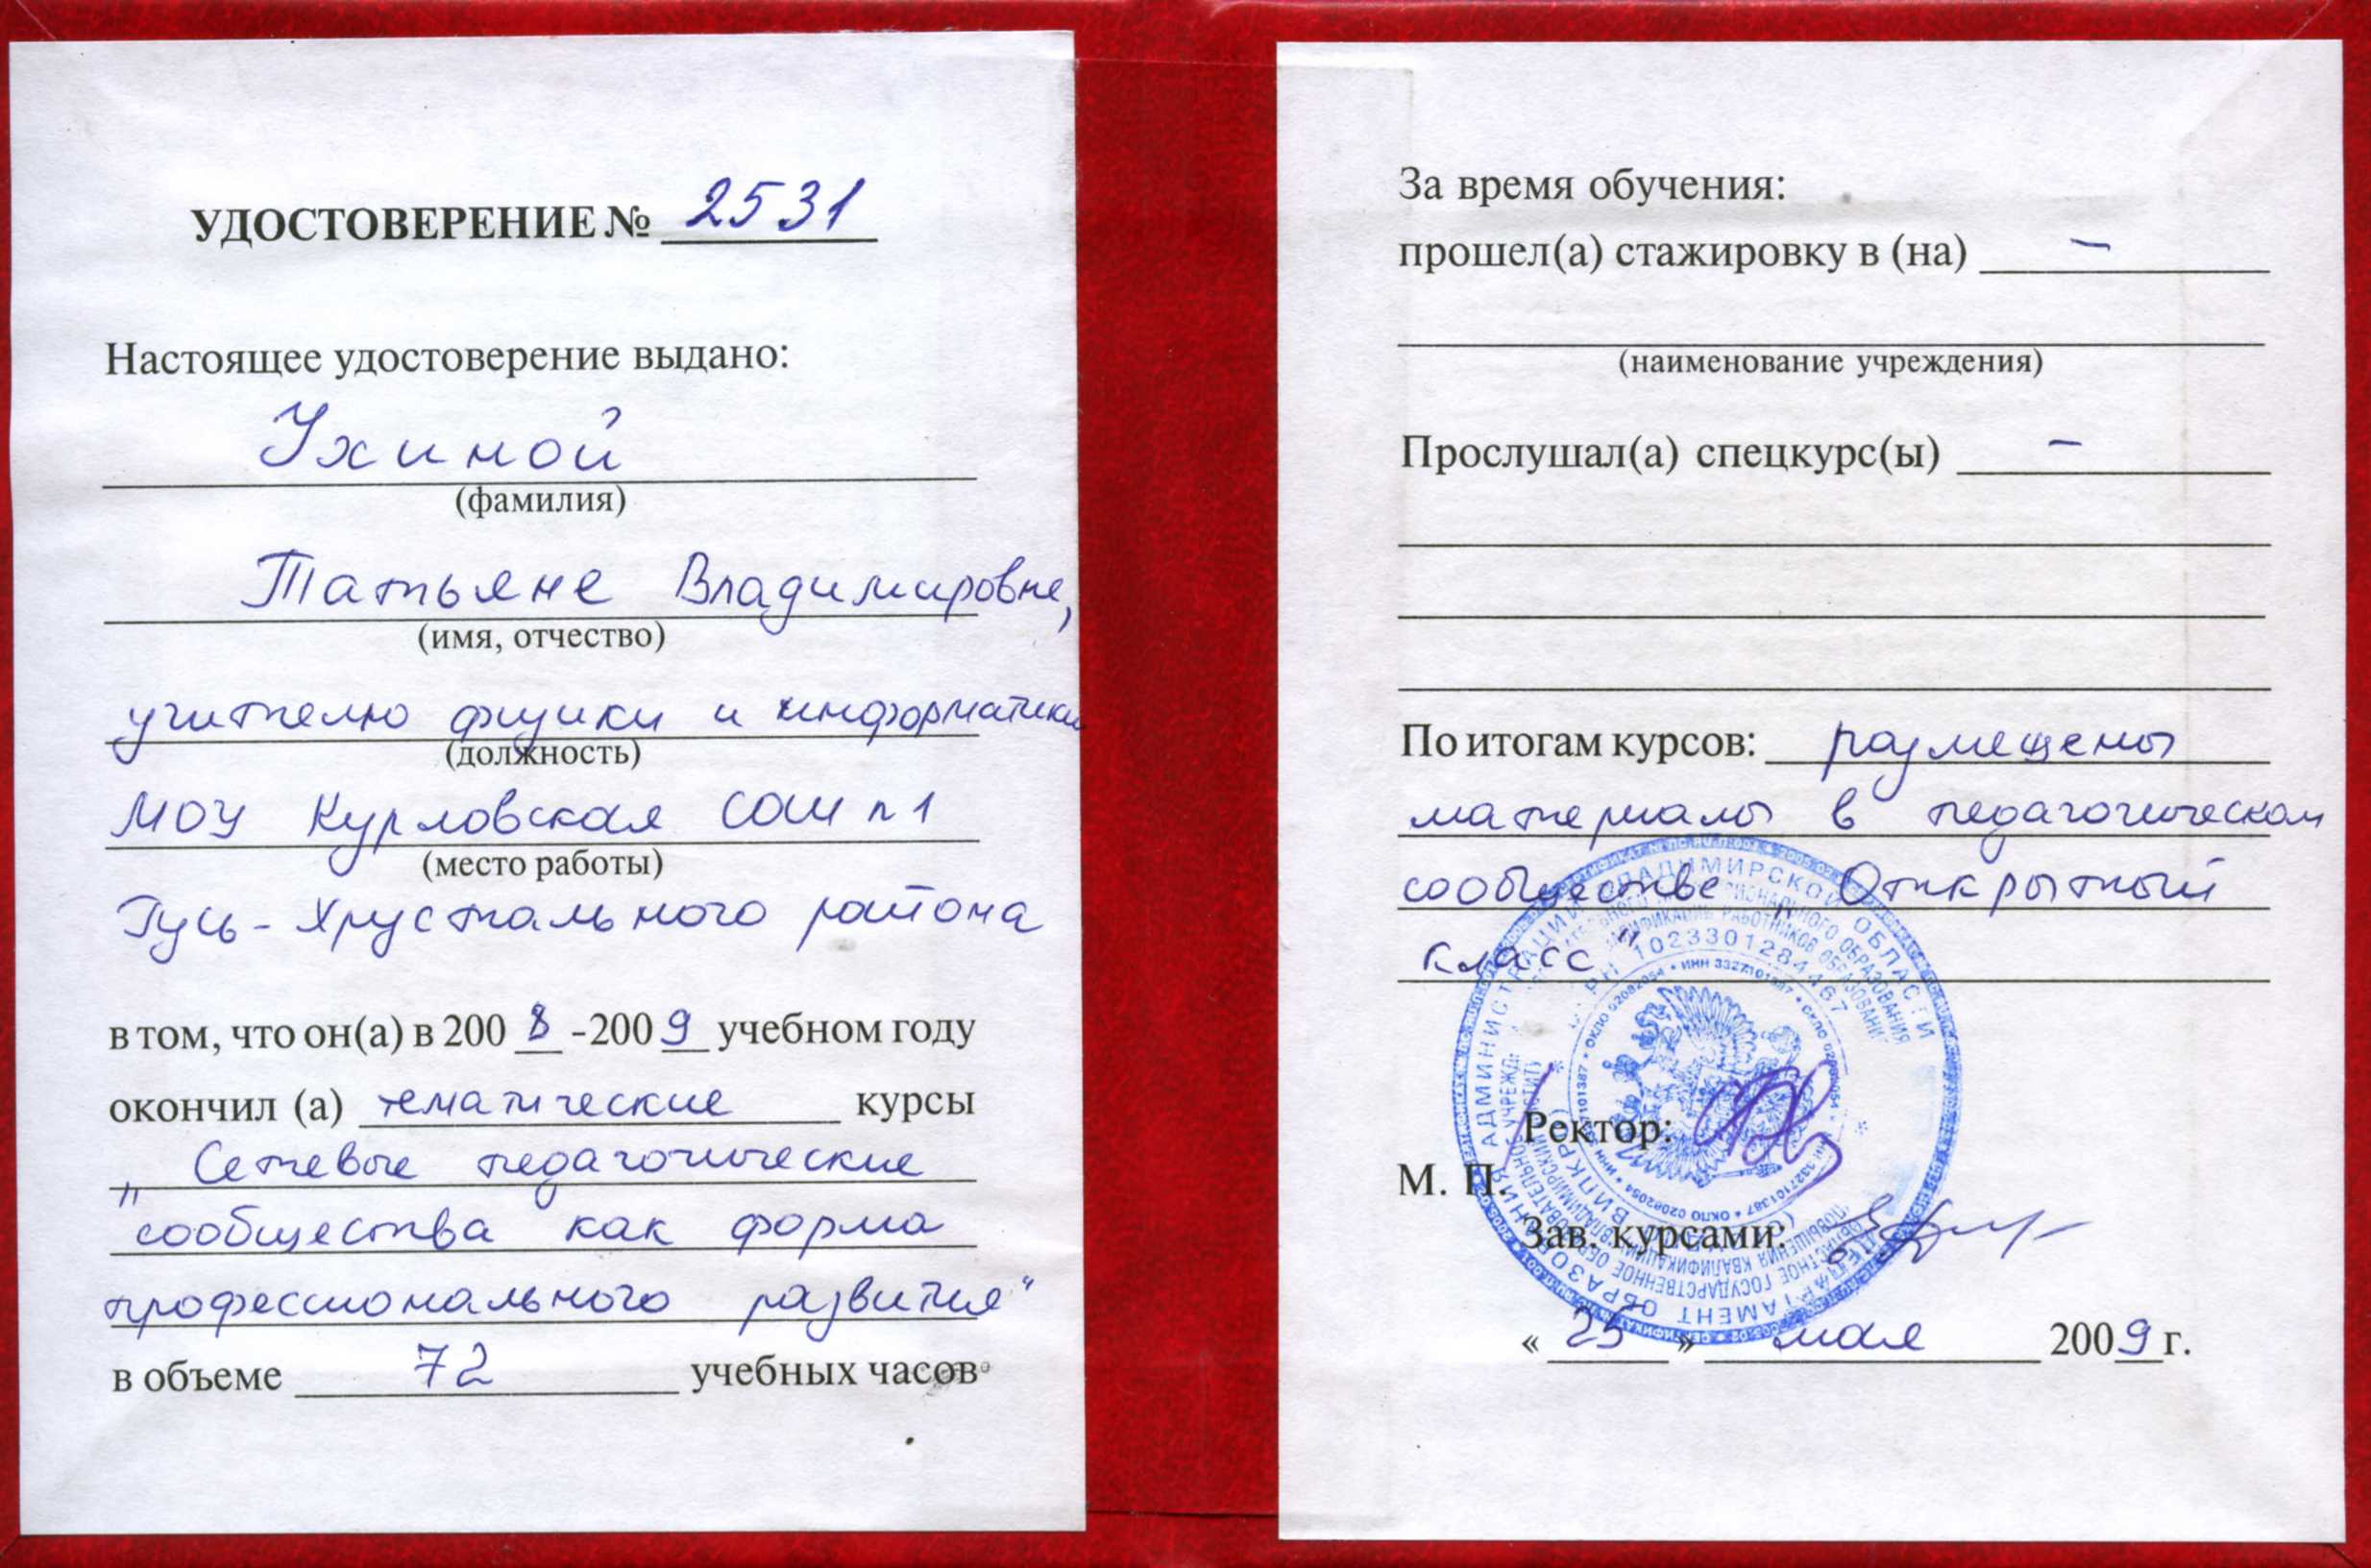 УДОСТОВЕРЕНИЕ № 2531
Настоящее удостоверение выдано:
Ухиной
(фамилия)
Татьяне Владимировне,
(имя, отчество)
учителю физики и информатики
(должность)
МОУ Курловская СОШ №1
(место работы)
Гусь-Хрустального района
в том, что он(а) в 2008-2009 учебном году
окончил (а) тематические курсы
„Сетевые педагогические
сообщества как форма
профессионального развития“
в объеме 72 учебных часов
За время обучения:
прошел(а) стажировку в (на) –
(наименование учреждения)
Прослушал(а) спецкурс(ы) –
По итогам курсов: размещены
материалы в педагогическом
сообществе „Открытый
класс“
Ректор:
М. П.
Зав. курсами:
« 25 » мая 2009 г.
АДМИНИСТРАЦИИ ВЛАДИМИРСКОЙ ОБЛАСТИ
ДЕПАРТАМЕНТ ОБРАЗОВАНИЯ
ОГРН 1023301284467
ВИПКРО
ИНН 3327101387 • ОКПО 02082054